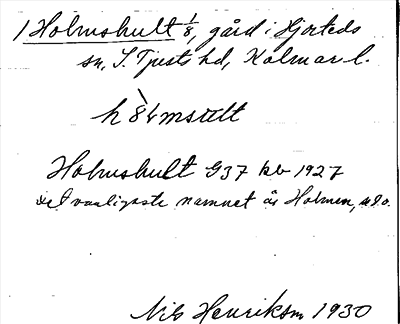 1 Holmshult 1/8, gård i Hjorteds
sn, S. Tjusts hd, Kalmar l.
Holmshult G37 kb 1927
det vanligaste namnet är Holmen,
Nils Henrikson 1930